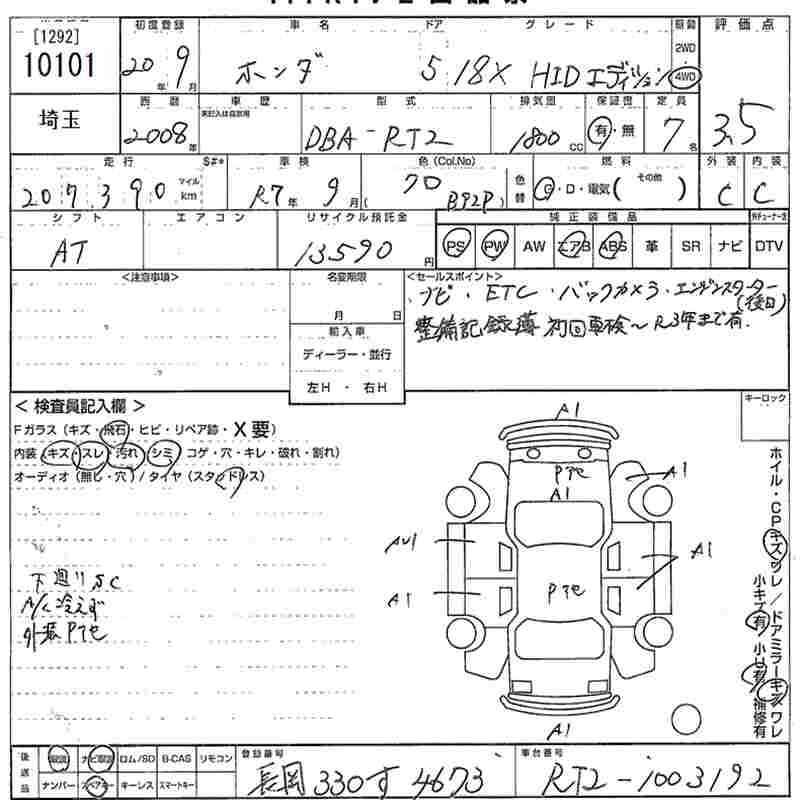 [1292]
10101
埼玉
初度登録
20年 9月
車名
ホンダ
ドア
5
グレード
18X HIDエディション
駆動
2WD
4WD
評価点
3.5
西暦
2008年
車歴
未記入は自家用
型式
DBA-RT2
排気量
1800cc
保証書
有・無
定員
7名
走行 S#*
207390 マイル km
車検
R7年 9月(
色(Col.No)
70 B92P)
色替
燃料
G・D・電気( その他 )
外装
C
内装
C
シフト
AT
エアコン
リサイクル預託金
13590円
純正装備品
PS PW AW エアB ABS 革 SR ナビ DTV
<注意事項>
名変期限
月 日
輸入車
ディーラー・並行
左H・右H
<セールスポイント>
ナビ・ETC・バックカメラ・エンジンスターター
(後日)
整備記録簿 初回車検〜R3年まで有.
キーロック
<検査員記入欄>
Fガラス(キズ・飛石・ヒビ・リペア跡・X要)
内装(キズ・スレ・汚れ・シミ)コゲ・穴・キレ・破れ・割れ)
オーディオ(無ビ・穴)/タイヤ(スタッドレス)
下廻りSC
A/C冷えず
外装Pて也
A1
Pて也
A1
A1
AU1
A1
A1
Pて也
A1
ホイル・CPキズワレ/ドアミラーキズワレ
小キズ有 小U有 補修有
後送品
取説 ナビ取説 ロム/SD B-CAS リモコン
ナンバー スペアキー キーレス スマートキー
登録番号
長岡 330す4673
車台番号
RT2-1003192